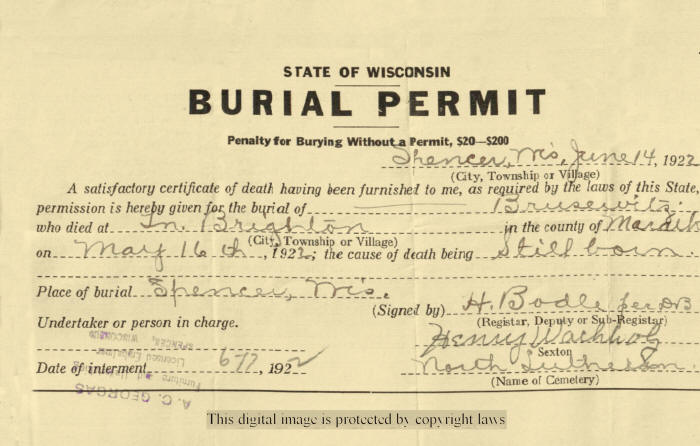 STATE OF WISCONSIN
BURIAL PERMIT
Penalty for Burying Without a Permit, $20—$200
Spencer, Wis, June 14, 1922
(City, Township or Village)
A satisfactory certificate of death having been furnished to me, as required by the laws of this State,
permission is hereby given for the burial of Brusewitz.
who died at Tn. Brighton in the county of
(City, Township or Village)
on May 16th, 1922; the cause of death being Still born.
Place of burial Spencer, Wis.
(Signed by) H. Bodle per DB
(Registrar, Deputy or Sub-Registrar)
Undertaker or person in charge.
Henry Wachholz
Sexton
Date of interment 192
North Lutheran.
(Name of Cemetery)
A. C. GEORGAS
Furniture and
Licensed Embalmer
SPENCER, WISCONSIN
This digital image is protected by copyright laws